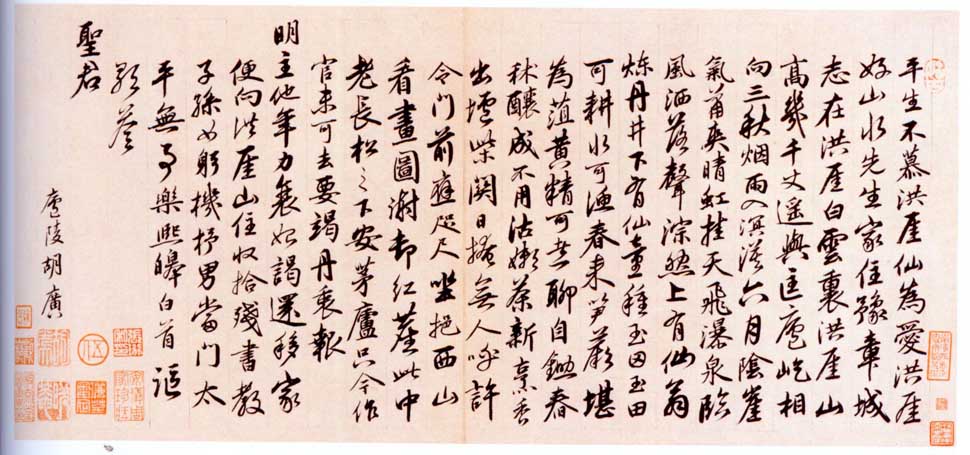 平生不慕洪厓仙為愛洪厓
好山水先生家住豫章城
志在洪厓白雲裏洪厓山
高幾千丈遙與匡廬屹相
向三秋烟雨入溟濛六月陰崖
氣蕭爽晴虹挂天飛瀑泉臨
風洒落聲淙然上有仙翁
煉丹井下有仙童種玉田玉田
可耕水可漁春來笋蕨堪
為菹黃精可煮聊自鋤春
秫釀成不用沽嫩茶新采香
出壚柴關日掩無人呼許
令門前咫尺坐挹西山
看畫圖謝却紅塵此中
老長松之下安茅廬只今作
官未可去要竭丹衷報
明主他年力衰如謁還移家
便向洪厓山住收拾殘書教
子孫女躬機杼男當門太
平無事樂熙皞白首謳
歌答
聖君
廬陵胡廣